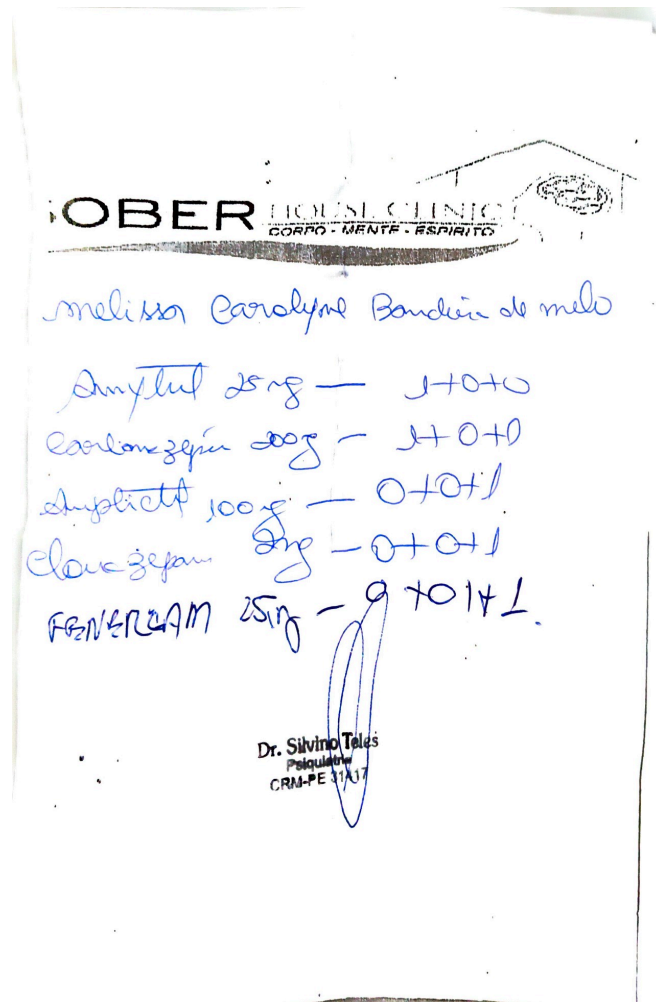 SOBER HOUSE CLINIC
CORPO - MENTE - ESPIRITO
Melissa Carolyne Bandeira de melo
Amytril 25 mg — 1+0+0
Carbamazepina 200g — 1+0+1
Amplictil 100g — 0+0+1
Clonazepam 2mg — 0+0+1
FENERGAM 25mg —
Dr. Silvino Teles
Psiquiatria
CRM-PE